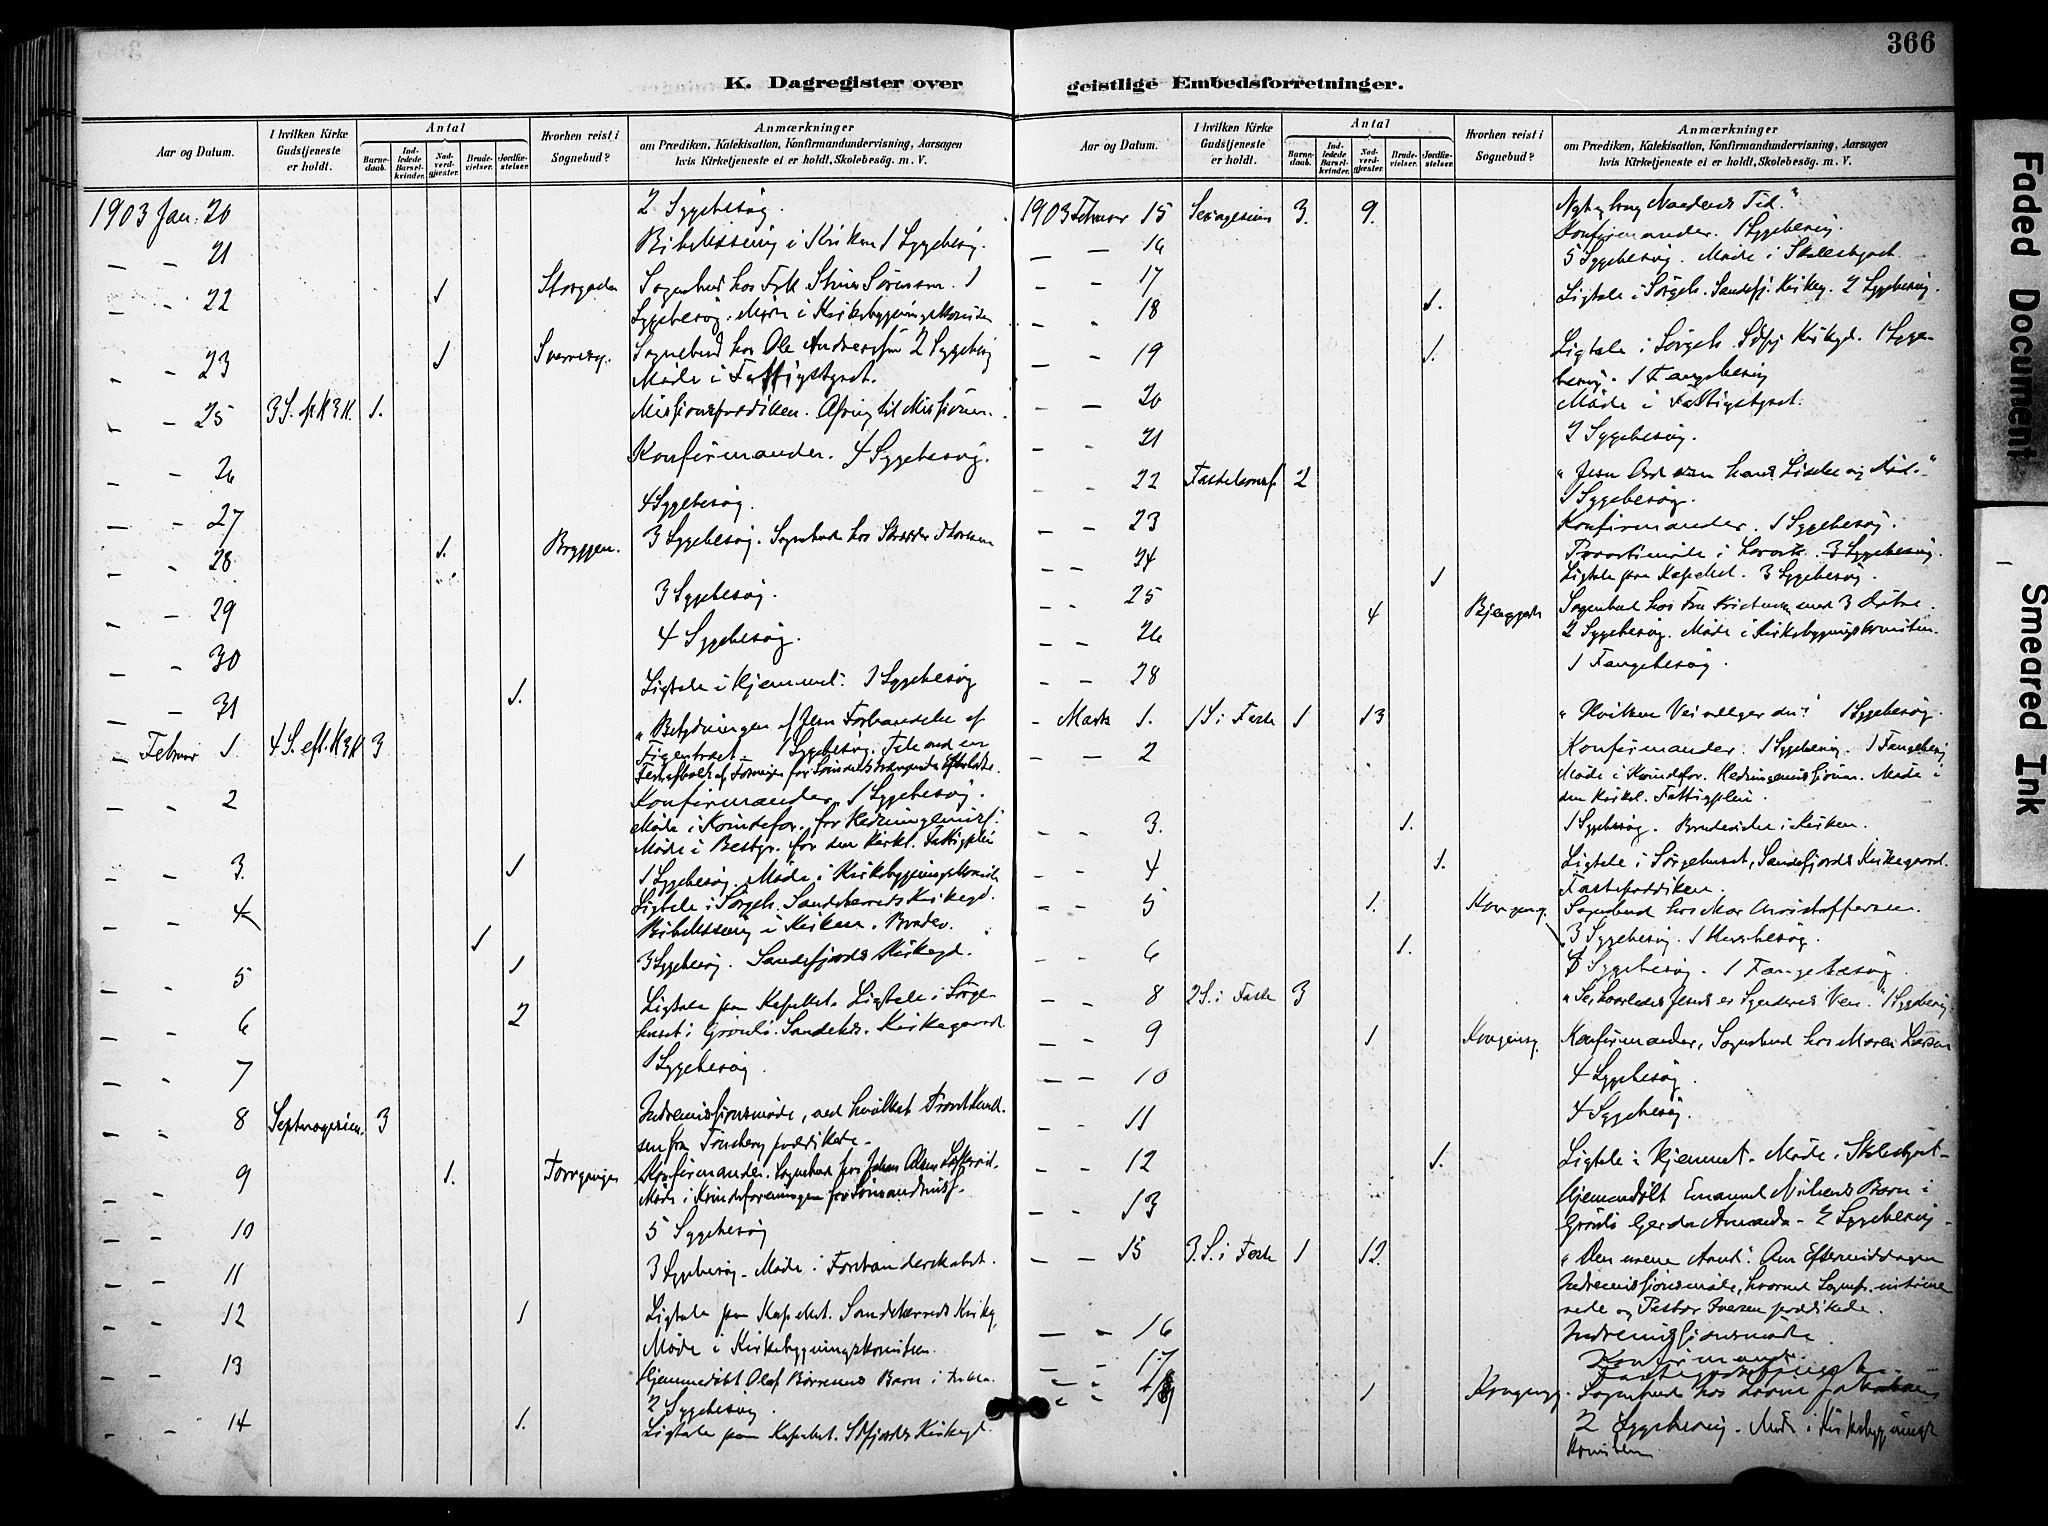 366
K. Dagregister over
geistlige Embedsforretninger.
Aar og Datum.
I hvilken Kirke Gudstjeneste er holdt.
Antal
Barne-daab.
Ind-ledede Barsel-kvinder.
Nad-verd-gjæster.
Brude-vielser.
Jordfæ-stelser.
Hvorhen reist i Sognebud?
Anmærkninger
om Prædiken, Katekisation, Konfirmandundervisning, Aarsagen
hvis Kirketjeneste ei er holdt, Skolebesøg. m. V.
1903 Jan. 20 2 Sygebesøg.
— — 21 Bibellæsning i Kirken 1 Sygebesøg.
— — 22 1 Storgaden Sognebud hos Frk Stine Sørensen. 1
Sygebesøg. Møde i Kirkebygningskomiteen
— — 23 1 Sognebud hos Ole Andersen 2 Sygebesøg
Møde i Fattigstyret.
— — 25 3 S. ef. H3K. 1. Missionsprædiken.
Konfirmander. 4 Sygebesøg.
— — 26
4 Sygebesøg.
— — 27
— — 28 1. Bryggen. 3 Sygebesøg. Sognebud hos
3 Sygebesøg.
— — 29
4 Sygebesøg.
— — 30
1. Ligtale i Hjemmet. 1 Sygebesøg
— — 31
"Betydningen af Jesu Forbandelse af
— Februar 1. 4 S. eft. H3K 3 Figentræet — 1 Sygebesøg.
— — 2 Konfirmander, 1 Sygebesøg.
Møde i Kvindefor. for Hedningemiss.
Møde i Bestyr. for den kirkl. Fattigpleie
— — 3. 1 1 Sygebesøg. Møde i Kirkebygningskomite
Ligtale i Sørgeh. Sandeherreds Kirkegd.
— — 4 1 Bibellæsning i Kirken. Brudev.
1 3 Sygebesøg. Sandefjords Kirkegd.
— — 5
Ligtale paa Kapellet. Ligtale i Sørge-
— — 6 2 huset i Grønli. Sandehds. Kirkegaard.
— — 7 1 Sygebesøg
— — 8 Septuagesim. 3 Indremissionsmøde, ved hvilket
sen fra Tønsberg prædikede.
— — 9 1. Konfirmander. Sognebud hos Johan Olsen
Møde i Kvindeforeningen for Sømandsmiss.
— — 10 5 Sygebesøg
— — 11 3 Sygebesøg. Møde i Forstanderskabet.
— — 12 1 Ligtale paa Kapellet. Sandeherreds Kirkg.
Møde i Kirkebygningskomiteen.
— — 13 Hjemmedøbt Olaf Børresens Barn i
2 Sygebesøg.
— — 14 1. Ligtale paa Kapellet. Sdfjords Kirkegd.
Aar og Datum.
I hvilken Kirke Gudstjeneste er holdt.
Antal
Barne-daab.
Ind-ledede Barsel-kvinder.
Nad-verd-gjæster.
Brude-vielser.
Jordfæ-stelser.
Hvorhen reist i Sognebud?
Anmærkninger
om Prædiken, Katekisation, Konfirmandundervisning, Aarsagen
hvis Kirketjeneste ei er holdt, Skolebesøg. m. V.
1903 Februar 15 Sexagesima 3. 9. Naadens Tid."
— — 16 Konfirmander. 1 Sygebesøg.
— — 17 5 Sygebesøg. Møde i Skolestyret.
— — 18 1. Ligtale i Sørgeh. Sandefj. Kirkeg. 2 Sygebesøg.
— — 19 1. Ligtale i Sørgeh. Sdfj Kirkegd. 1 Syge-
besøg. 1 Fangebesøg
— — 20 Møde i Fattigstyret.
— — 21 2 Sygebesøg.
— — 22 FastelavnsS 2 "Jesu Ord om hans Lidelse og Død."
1 Sygebesøg.
— — 23 Konfirmander. 1 Sygebesøg.
— — 24 Provstimøde i Larvik. 3 Sygebesøg.
1 Ligtale paa Kapellet. 3 Sygebesøg.
— — 25
4 Sognebud hos Fru med 3 Døtre.
— — 26 2 Sygebesøg. Møde i Kirkebygningskomiteen.
— — 28 1 Fangebesøg.
— Marts 1. 1 S. i Faste 1 13 "Hvilken Vei vælger du? 1 Sygebesøg.
— — 2 Konfirmander. 1 Sygebesøg. 1 Fangebesøg
Møde i Kvindefor. Hedningemission. Møde i
den kirkl. Fattigpleie.
— — 3. 1. 1 Sygebesøg. Brudevielse i Kirken.
— — 4 1. Ligtale i Sørgehuset, Sandefjords Kirkegaard.
Fasteprædiken.
— — 5 1. Kongensg. Sognebud hos Mar Christoffersen.
3 Sygebesøg. 1 Husbesøg.
— — 6 1. Sygebesøg. 1 Fangebesøg.
— — 8 2 S. i Faste 3 "Se hvorledes Jesus er Synderes Ven." 1 Sygebesøg.
— — 9 1 Kongensg. Konfirmander, Sognebud hos Maren Larsen
— — 10 4 Sygebesøg.
— — 11 4 Sygebesøg.
— — 12 1. Ligtale i Hjemmet. Møde i Skolestyret.
— — 13 Hjemmedøbt Emanuel Nilsens Barn i
Grønli Gerda Amanda. 2 Sygebesøg.
— — 15 3. S. i Faste 1 12. "Den urene Aand". Om Eftermiddagen
Indremissionsmøde, hvorved Sognepr.
og Pastor Iversen prædikede.
— — 16 Indremissionsmøde.
— — 17 Konfirmander.
1 Kongensg. Sognebud hos
— — 19
2 Sygebesøg. Møde i Kirkebygnings
komiteen
Faded Document
Smeared Ink